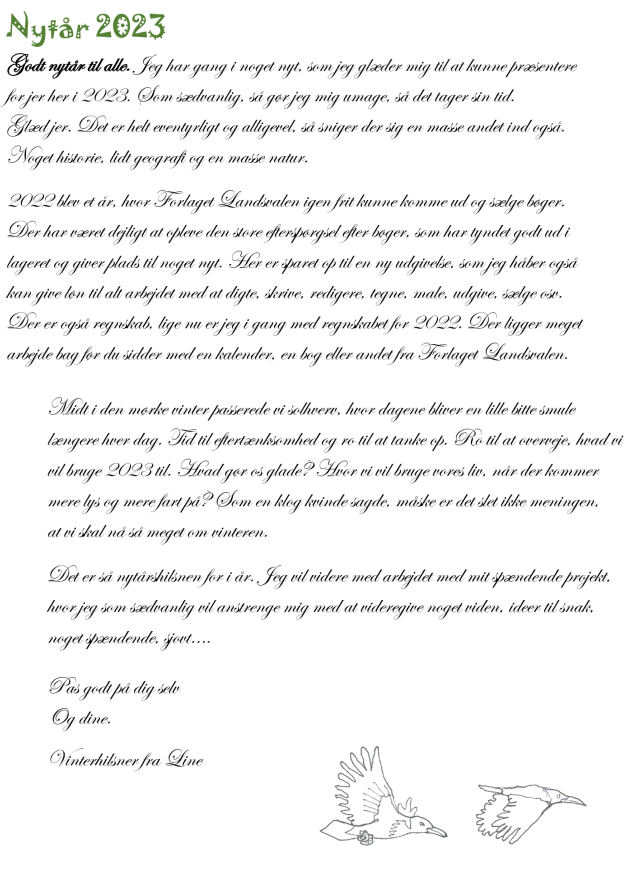 Nytår 2023
Godt nytår til alle. Jeg har gang i noget nyt, som jeg glæder mig til at kunne præsentere
for jer her i 2023. Som sædvanlig, så gør jeg mig umage, så det tager sin tid.
Glæd jer. Det er helt eventyrligt og alligevel, så sniger der sig en masse andet ind også.
Noget historie, lidt geografi og en masse natur.
2022 blev et år, hvor Forlaget Landsvalen igen frit kunne komme ud og sælge bøger.
Der har været dejligt at opleve den store efterspørgsel efter bøger, som har tyndet godt ud i
lageret og giver plads til noget nyt. Her er sparet op til en ny udgivelse, som jeg håber også
kan give løn til alt arbejdet med at digte, skrive, redigere, tegne, male, udgive, sælge osv.
Der er også regnskab, lige nu er jeg i gang med regnskabet for 2022. Der ligger meget
arbejde bag før du sidder med en kalender, en bog eller andet fra Forlaget Landsvalen.
Midt i den mørke vinter passerede vi solhverv, hvor dagene bliver en lille bitte smule
længere hver dag. Tid til eftertænksomhed og ro til at tanke op. Ro til at overveje, hvad vi
vil bruge 2023 til. Hvad gør os glade? Hvor vi vil bruge vores liv, når der kommer
mere lys og mere fart på? Som en klog kvinde sagde, måske er det slet ikke meningen,
at vi skal nå så meget om vinteren.
Det er så nytårshilsnen for i år. Jeg vil videre med arbejdet med mit spændende projekt,
hvor jeg som sædvanlig vil anstrenge mig med at videregive noget viden, ideer til snak,
noget spændende, sjovt....
Pas godt på dig selv
Og dine.
Vinterhilsner fra Line